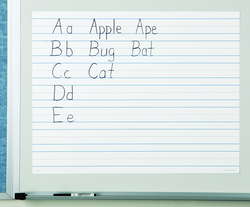 Aa Apple Ape
Bb Bug Bat
Cc Cat
Dd
Ee